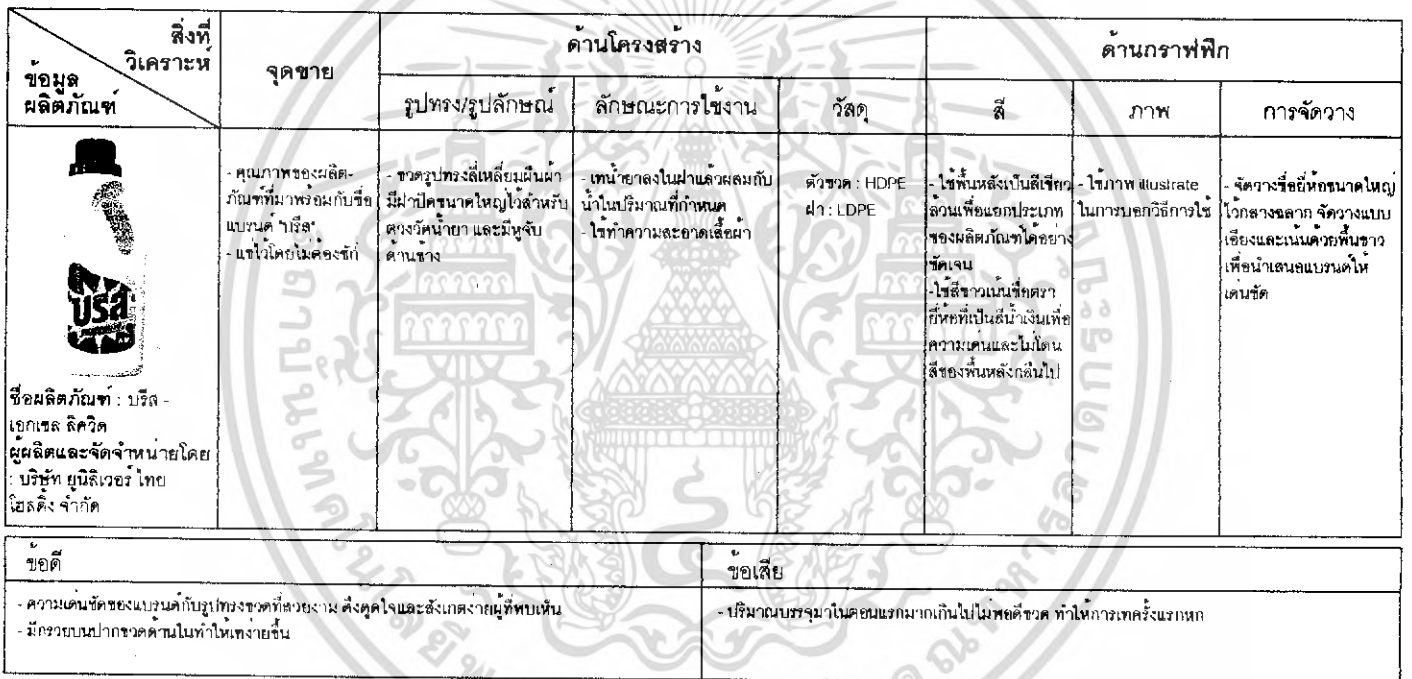 สิ่งที่
วิเคราะห์
ข้อมูล
ผลิตภัณฑ์
จุดขาย
ด้านโครงสร้าง
ด้านกราฟฟิก
รูปทรง/รูปลักษณ์
ลักษณะการใช้งาน
วัสดุ
สี
ภาพ
การจัดวาง
บรีส
ชื่อผลิตภัณฑ์ : บรีส -
เอกเซล ลิควิด
ผู้ผลิตและจัดจำหน่ายโดย
: บริษัท ยูนิลิเวอร์ ไทย
โฮลดิ้ง จำกัด
- คุณภาพของผลิต-
ภัณฑ์ที่มาพร้อมกับชื่อ
แบรนด์ "บรีส"
- แช่ไว้โดยไม่ต้องซัก
- ขวดรูปทรงสี่เหลี่ยมผืนผ้า
มีฝาปิดขนาดใหญ่ไว้สำหรับ
ตวงวัดน้ำยา และมีหูจับ
ด้านข้าง
- เทน้ำยาลงในฝาแล้วผสมกับ
น้ำในปริมาณที่กำหนด
- ใช้ทำความสะอาดเสื้อผ้า
ตัวขวด : HDPE
ฝา : LDPE
- ใช้พื้นหลังเป็นสีเขียว
ล้วนเพื่อแยกประเภท
ของผลิตภัณฑ์ได้อย่าง
ชัดเจน
-ใช้สีขาวเน้นชื่อตรา
ยี่ห้อที่เป็นสีน้ำเงินเพื่อ
ความเด่นและไม่โดน
สีของพื้นหลังกลืนไป
- ใช้ภาพ illustrate
ในการบอกวิธีการใช้
- จัดวางชื่อยี่ห้อขนาดใหญ่
ไว้กลางฉลาก จัดวางแบบ
เอียงและเน้นด้วยพื้นขาว
เพื่อนำเสนอแบรนด์ให้
เด่นชัด
ข้อดี
- ความเด่นชัดของแบรนด์กับรูปทรงขวดที่สวยงาม ดึงดูดใจและสังเกตง่ายผู้ที่พบเห็น
- มีกรวยบนปากขวดด้านในทำให้เทง่ายขึ้น
ข้อเสีย
- ปริมาณบรรจุมาในตอนแรกมากเกินไปไม่พอดีขวด ทำให้การเทครั้งแรกหก